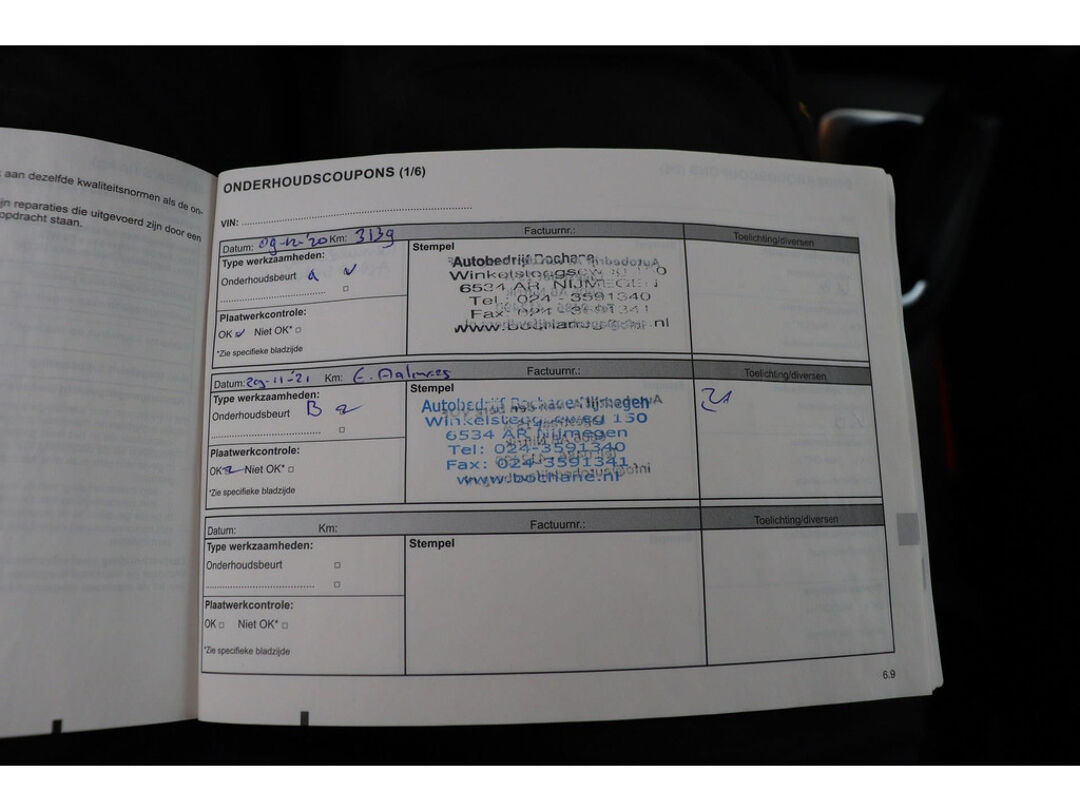 aan dezelfde kwaliteitsnormen als de on-
reparaties die uitgevoerd zijn door een
opdracht staan.
ONDERHOUDSCOUPONS (1/6)
VIN:
Datum: 09-12-'20 Km: 3139 Factuurnr.: Toelichting/diversen
Type werkzaamheden: Stempel
Onderhoudsbeurt a
Autobedrijf Bochane
Winkelsteegseweg 150
6534 AR NIJMEGEN
Tel 024 - 3591340
Fax 024 - 3591341
Plaatwerkcontrole:
OK Niet OK*
*Zie specifieke bladzijde
Datum: 29-11-'21 Km: Factuurnr.: Toelichting/diversen
Type werkzaamheden: Stempel
Onderhoudsbeurt B
Autobedrijf Bochane Nijmegen
Winkelsteegseweg 150
6534 AR Nijmegen
Tel: 024-3591340
Fax: 024-3591341
www.bochane.nl
21
Plaatwerkcontrole:
OK Niet OK*
*Zie specifieke bladzijde
Datum: Km: Factuurnr.: Toelichting/diversen
Type werkzaamheden: Stempel
Onderhoudsbeurt
Plaatwerkcontrole:
OK Niet OK*
*Zie specifieke bladzijde
6.9